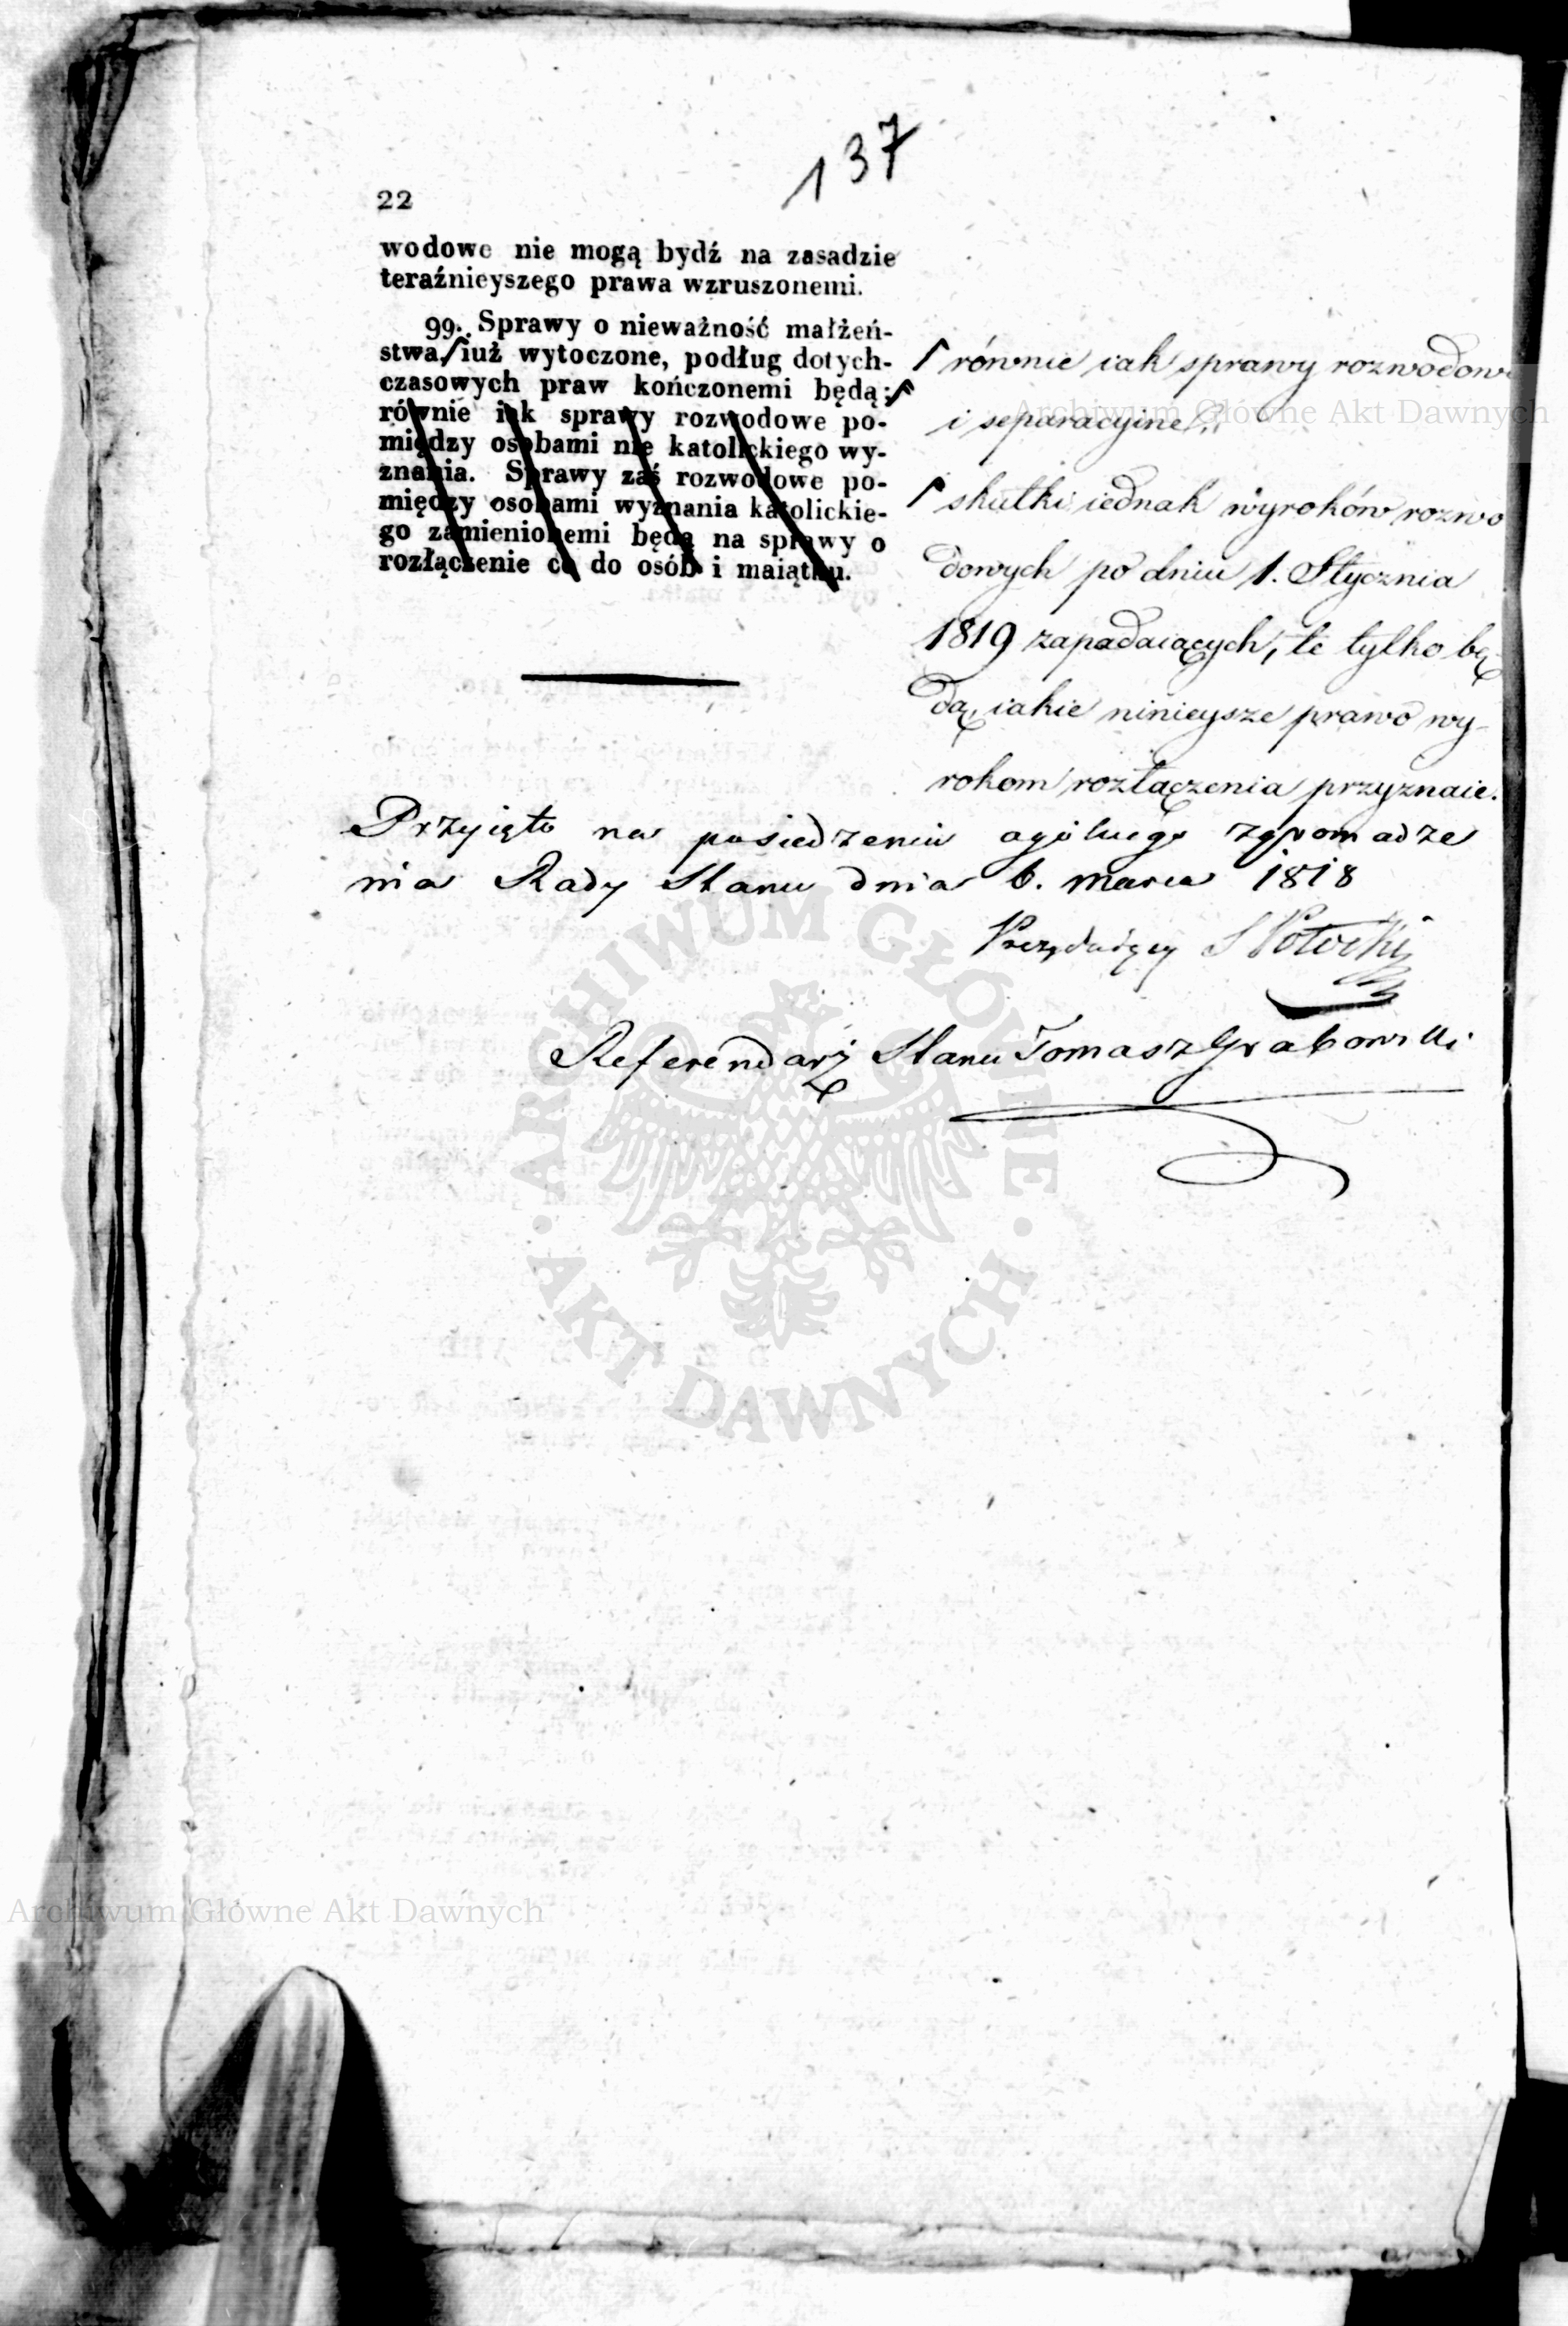 137
22
wodowe nie mogą bydź na zasadzie
teraźnieyszego prawa wzruszonemi.
99. Sprawy o nieważność małżeń-
stwa,⌈iuż wytoczone, podług dotych-
czasowych praw kończonemi będą;⌈
równie iak sprawy rozwodowe po-
między osobami nie katolickiego wy-
znania. Sprawy zaś rozwodowe po-
między osobami wyznania katolickie-
go zamienionemi będą na sprawy o
rozłączenie co do osób i maiątku.
⌈ równie iak sprawy rozwodowe
i separacyine
⌈ skutki iednak wyroków rozwo
dowych po dniu 1. Stycznia
1819 zapadaiących, te tylko bę-
dą, iakie ninieysze prawo wy-
rokom rozłączenia przyznaie.
Przyięto na posiedzeniu ogólnego zgromadze
nia Rady Stanu dnia 6. marca 1818
Prezyduiący S Potocki
Referendarz Stanu Tomasz Grabowski
Archiwum Główne Akt Dawnych
ARCHIWUM GŁÓWNE · AKT DAWNYCH ·
Archiwum Główne Akt Dawnych